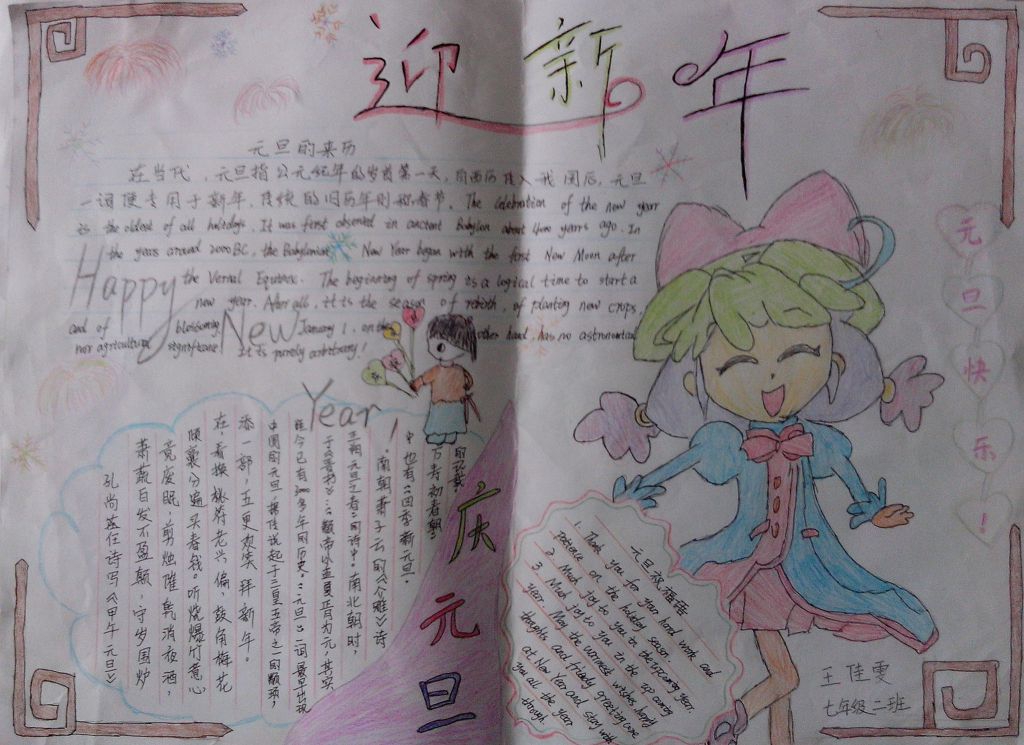 迎新年
元旦的来历
在当代,元旦指公元纪年的岁首第一天,自西历传入我国后,元旦
一词便专用于新年,传统的旧历年则称春节。The Celebration of the new year
is the oldest of all holidays. It was first observed in ancient Babylon about 4000 years ago. In
the years around 2000 BC, the Babylonian New Year began with the first New Moon after
the Vernal Equinox. The beginning of spring is a logical time to start a
new year. After all, it is the season of rebirth, of planting new crops,
and of blossoming. January 1, on the other hand, has no astronomical
nor agricultural significance. It is purely arbitrary!
Happy
New
Year,
元旦快乐!
的记载。
万寿初春朝"
中也有"四季新元旦。
"南朝萧子云的《介雅》诗
三朔元旦之者"的诗中。南北朝时,
于《晋书》:"颛帝以孟夏正月为元,其实
距今已有3000多年的历史。"元旦"一词最早出现
中国的元旦,据传说起于三皇五帝之一的颛顼,
添一部,五更欢笑拜新年。
在看换桃符老兴偏,鼓角梅花
倾囊分遍买春钱。听烧爆竹童心
竟废眠,剪烛催干消夜酒,
萧疏白发不盈颠,守岁围炉
孔尚任在诗写《甲午元旦》
庆元旦
元旦祝福语
1. Thank you for your hard work and
patience on the holiday season
2 Much joy to you in the upcoming year.
3 Much joy to you in the up coming
year. May the warmest wishes, happy
thoughts and friendly greetings come
at New Year and stay with
you all the year
through
王佳雯
七年级二班